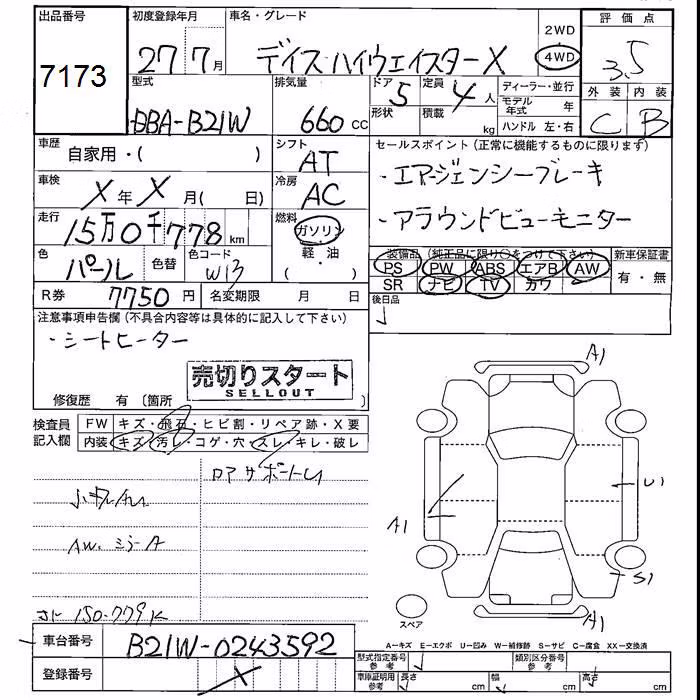 出品番号 初度登録年月 車名・グレード 評価点
7173 27年7月 デイズ ハイウェイスターX 2WD 4WD 3.5
型式 排気量 ドア 定員 ディーラー・並行 外装 内装
DBA-B21W 660cc 5 4人 モデル年式 年 C B
形状 積載 kg ハンドル 左・右
車歴 シフト セールスポイント(正常に機能するものに限ります)
自家用・( ) AT ・エマージェンシーブレーキ
車検 冷房
X年X月( 日) AC ・アラウンドビューモニター
走行 燃料
15万0千778km ガソリン
色 色替 色コード 軽・油 装備品(純正品に限り○をつけて下さい) 新車保証書
パール W13 ( ) PS PW ABS エアB AW 有・無
R券 7750円 名変期限 月 日 SR ナビ TV カワ
後日品
注意事項申告欄(不具合内容等は具体的に記入して下さい)
・シートヒーター
売切りスタート
SELLOUT
修復歴 有〔箇所 〕
検査員記入欄 FW キズ・飛石・ヒビ割・リペア跡・X要
内装 キズ・汚レ・コゲ・穴・スレ・キレ・破レ
小キズ
AW.ミラーA
150.779K
A1
U1
A1
S1
A1
スペア
A-キズ E-エクボ U-凹み W-補修跡 S-サビ C-腐食 XX-交換済
車台番号 B21W-0243592 型式指定番号 参考 類別区分番号 参考
登録番号 X 車庫証明用 参考 長さ cm 幅 cm 高さ cm